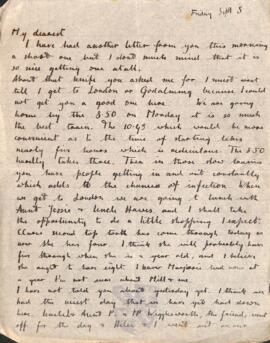 Friday Sept 8
My dearest
I have had another letter from you this morning
a short one but I don't much mind that it is
so nice getting one at all.
About that knife you asked me for I must wait
till I get to London or Godalming because I could
not get you a good one here. We are going
home by the 8.50 on Monday it is so much
the best train. The 10.45 which would be more
convenient as to the time of starting takes
nearly five hours which is ridiculous. The 8.50
hardly takes three. Then in those slow trains
you have people getting in and out constantly
which adds to the chances of infection. When
we get to London we are going to lunch with
Aunt Jessie & Uncle Harris and I shall take
the opportunity to do a little shopping I expect.
Clares second top tooth has come through today so
now she has four. I think she will probably have
five through when she is a year old, and I believe
she ought to have eight. I know Marjorie had now at
a year I'm not sure about Mill & me.
I have not told you about yesterday yet. I think we
had the nicest day that we have yet had down
here. Uncle & Aunt P. & Mr Wigglesworth the friend, went
off for the day & Helen & I went out on our